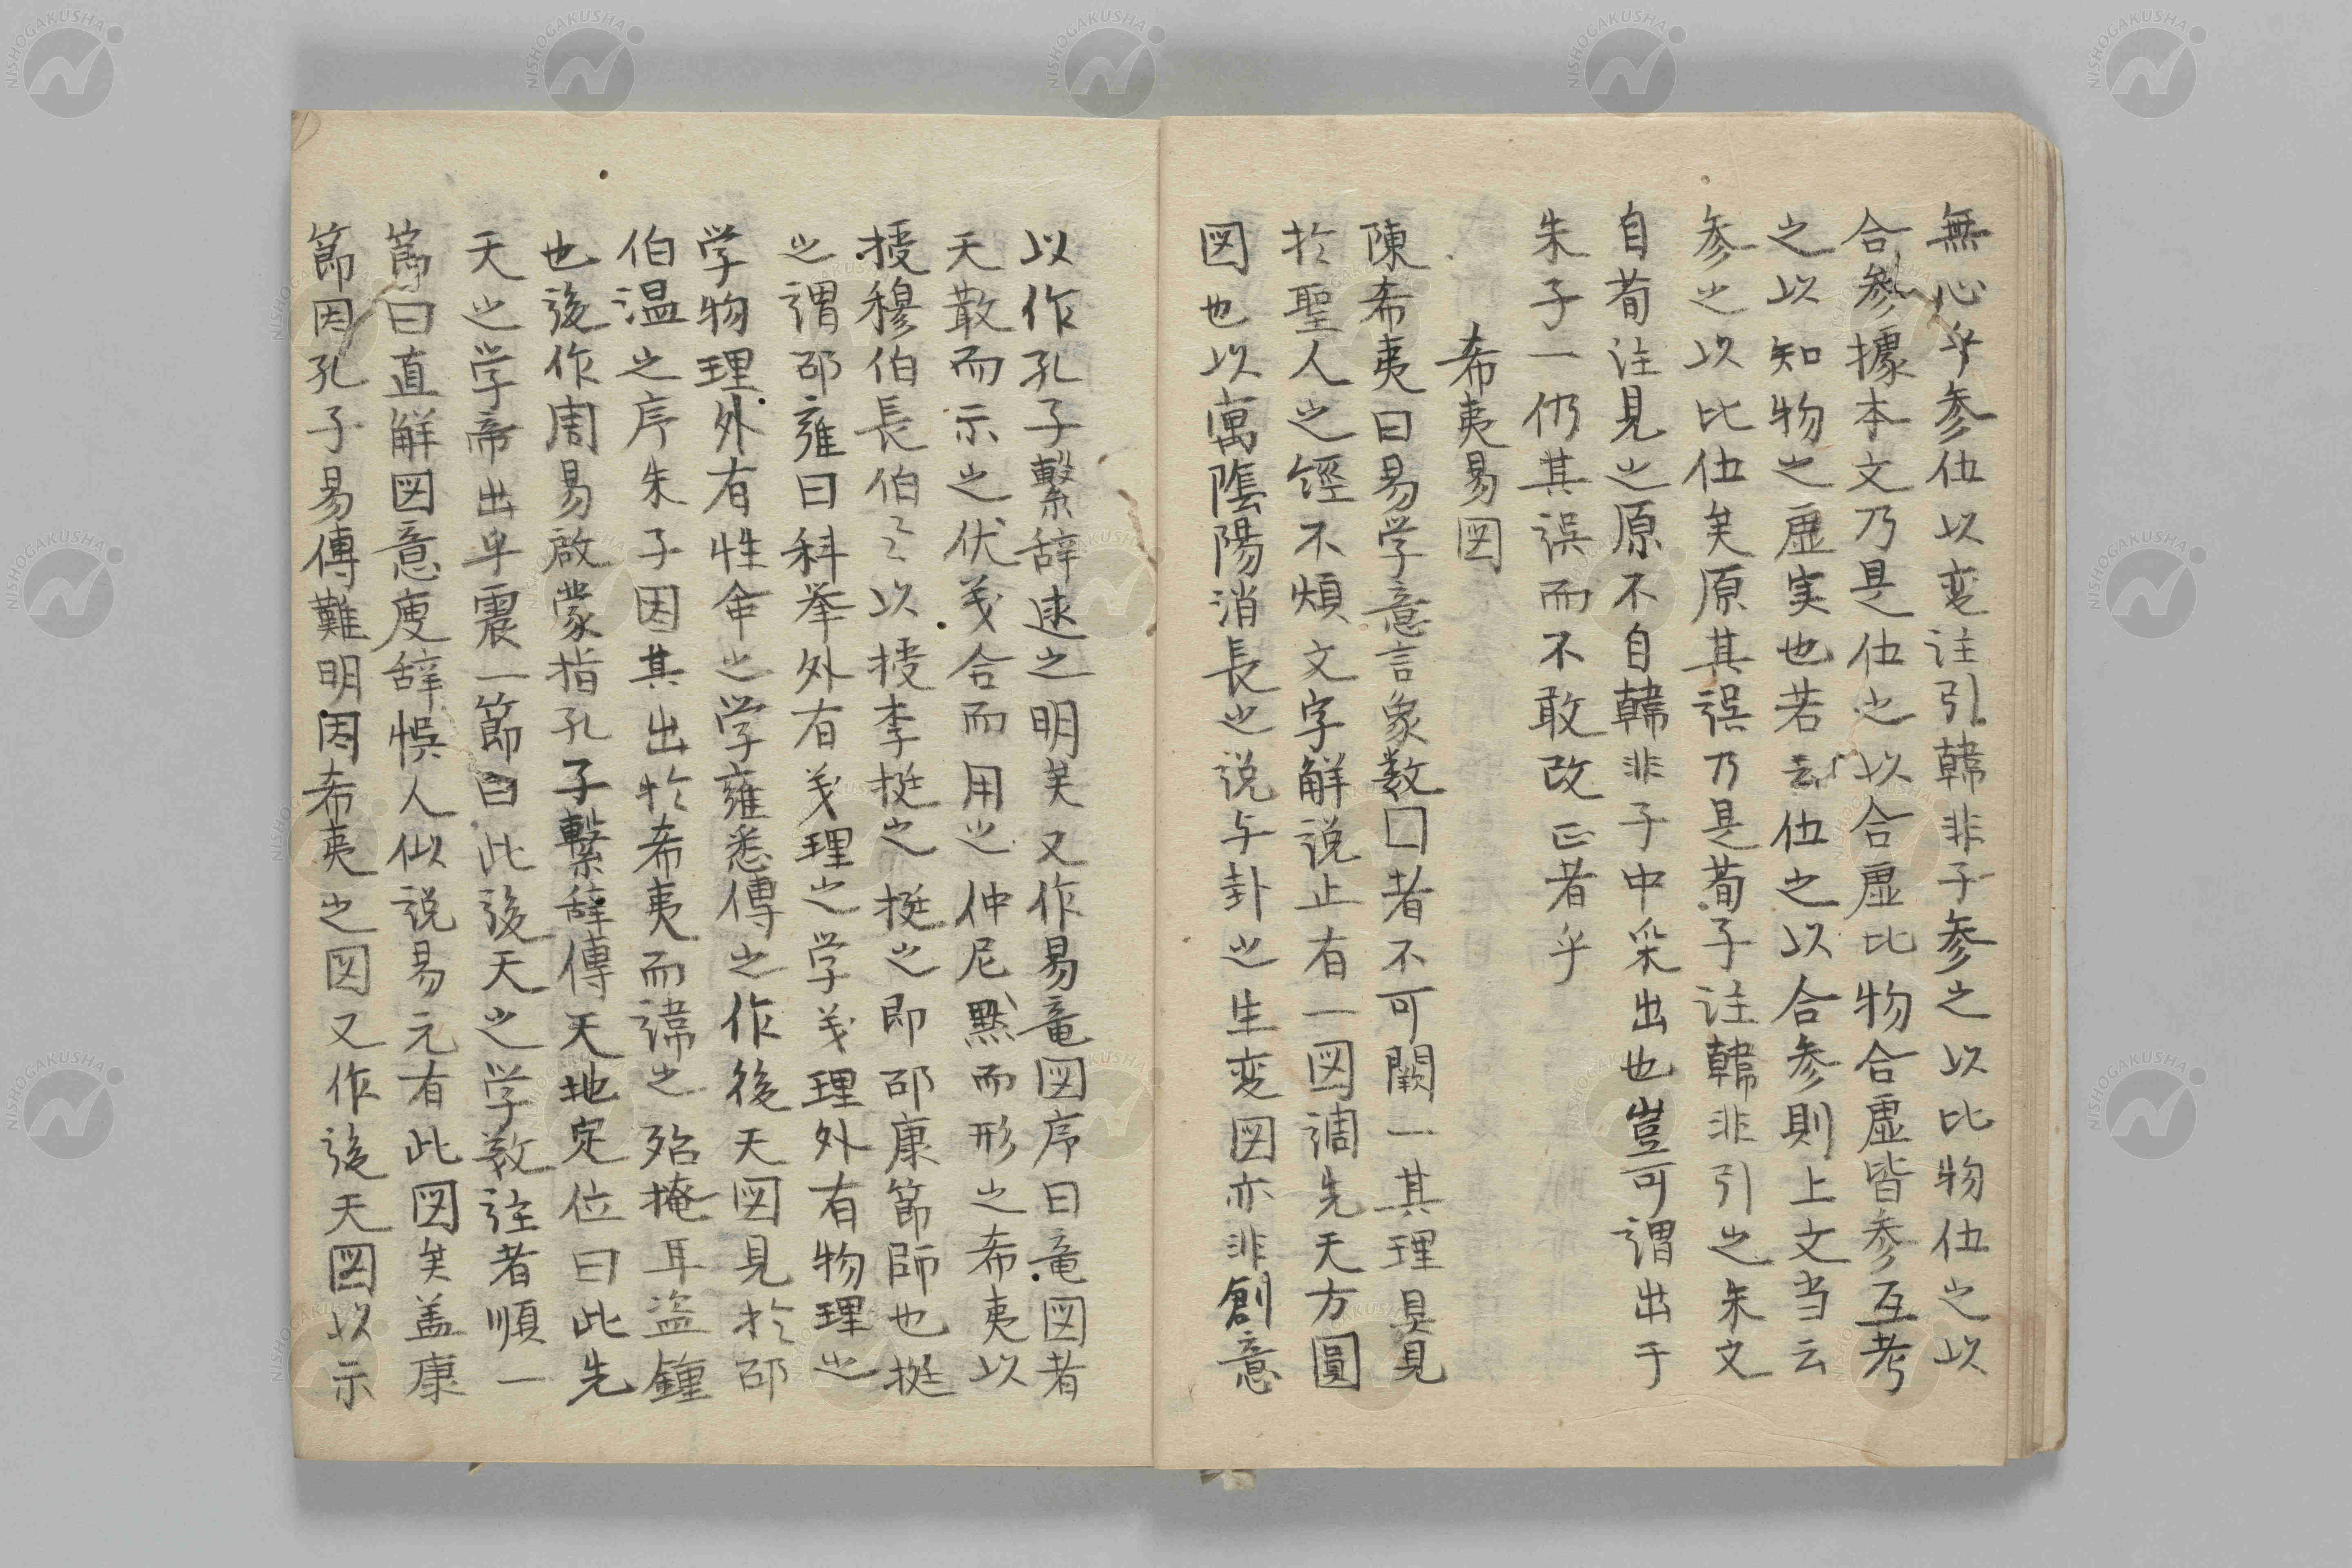 無心乎参伍以変注引韓非子参之以比物伍之以
合参據本文乃是伍之以合虚比物合虚皆参互考
之以知物之虚実也若云伍之以合参則上文当云
参之以比伍矣原其誤乃是荀子注韓非引之朱文
自荀注見之原不自韓非子中采出也豈可謂出于
朱子一仍其誤而不敢改正者乎
希夷易図
陳希夷曰易学意言象数囗者不可闕一其理具見
於聖人之經不煩文字解説止有一図謂先天方圓
図也以寓陰陽消長之説与卦之生変図亦非創意
以作孔子繫辞述之明矣又作易竜図序曰竜図者
天散而示之伏羲合而用之仲尼黙而形之希夷以
授穆伯長伯々以授李挺之挺之即邵康節師也挺
之謂邵雍曰科挙外有義理之学義理外有物理之
学物理外有性命之学雍悉傳之作後天図見於邵
伯温之序朱子因其出於希夷而諱之殆掩耳盗鐘
也後作周易啟蒙指孔子繫辞傳天地定位曰此先
天之学帝出乎震一節曰此後天之学数註者順一
節曰直解図意廋辞悞人似説易元有此図矣盖康
節因孔子易傳難明因希夷之図又作後天図以示